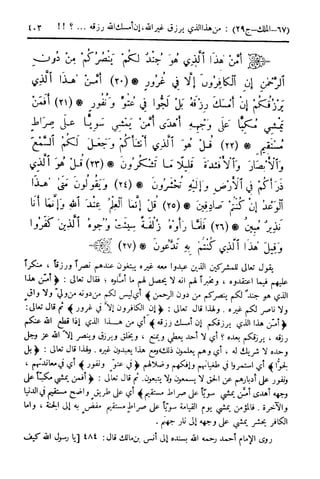 (٦٧-الملك-ج٢٩) : من هذا الذي يرزق غير الله، إن أمسك الله رزقه ... ؟ !! ٤٠٣
أَمَّنْ هَٰذَا ٱلَّذِي هُوَ جُندٌ لَّكُمْ يَنصُرُكُم مِّن دُونِ
ٱلرَّحْمَٰنِ إِنِ ٱلْكَافِرُونَ إِلَّا فِي غُرُورٍ * (٢٠) أَمَّنْ هَٰذَا ٱلَّذِي
يَرْزُقُكُمْ إِنْ أَمْسَكَ رِزْقَهُ بَل لَّجُّوا فِي عُتُوٍّ وَنُفُورٍ * (٢١) أَفَمَن
يَمْشِي مُكِبًّا عَلَىٰ وَجْهِهِ أَهْدَىٰ أَمَّن يَمْشِي سَوِيًّا عَلَىٰ صِرَاطٍ
مُّسْتَقِيمٍ * (٢٢) قُلْ هُوَ ٱلَّذِي أَنشَأَكُمْ وَجَعَلَ لَكُمُ ٱلسَّمْعَ
وَٱلْأَبْصَارَ وَٱلْأَفْئِدَةَ قَلِيلًا مَّا تَشْكُرُونَ * (٢٣) قُلْ هُوَ ٱلَّذِي
ذَرَأَكُمْ فِي ٱلْأَرْضِ وَإِلَيْهِ تُحْشَرُونَ * (٢٤) وَيَقُولُونَ مَتَىٰ هَٰذَا
ٱلْوَعْدُ إِن كُنتُمْ صَادِقِينَ * (٢٥) قُلْ إِنَّمَا ٱلْعِلْمُ عِندَ ٱللَّهِ وَإِنَّمَا أَنَا
نَذِيرٌ مُّبِينٌ * (٢٦) فَلَمَّا رَأَوْهُ زُلْفَةً سِيئَتْ وُجُوهُ ٱلَّذِينَ كَفَرُوا
وَقِيلَ هَٰذَا ٱلَّذِي كُنتُم بِهِ تَدَّعُونَ * (٢٧)
يقول تعالى للمشركين الذين عبدوا معه غيره يبتغون عندهم نصراً ورزقاً ، منكراً
عليهم فيما اعتقدوه ، ومخبراً لهم انه لا يحصل لهم ما أملوه ؛ فقال تعالى : ﴿ أمّن هذا
الذي هو جند لكم ينصركم من دون الرحمن ﴾ أي ليس لكم من دونه من ولي ولا واق
ولا ناصر لكم غيره . ولهذا قال تعالى : ﴿ إن الكافرون إلا في غرور ﴾ ثم قال تعالى :
﴿ أمّن هذا الذي يرزقكم إن أمسك رزقه ﴾ أي من هـذا الذي إذا قطع الله عنكم
رزقه ، يرزقكم بعده ؟ أي لا أحد يعطي ويمنع ، ويخلق ويرزق وينصر إلا الله عز وجل
وحده لا شريك له . أي وهم يعلمون ذلك ومع هذا يعبدون غيره . ولهذا قال تعالى : ﴿ بل
لجوا ﴾ أي استمروا في طغيانهم وإفكهم وضلالهم ﴿ في عتو ونفور ﴾ أي في معاندتهم ،
ونفور على أدبارهم عن الحق لا يسمعون ولا يتبعون. ثم قال تعالى : ﴿ أفمن يمشي مكباً على
وجهه أهدى أمّن يمشي سوياً على صراط مستقيم ﴾ أي على طريق واضح مستقيم في الدنيا
والآخرة . فالمؤمن يمشي يوم القيامة سوياً على صراط مستقيم مفض به إلى الجنة ، واما
الكافر يحشر يمشي على وجهه إلى نار جهنم .
روى الإمام أحمد رحمه الله بسنده إلى أنس بن مالك قال : ٤٨٤ [ يا رسول الله كيف